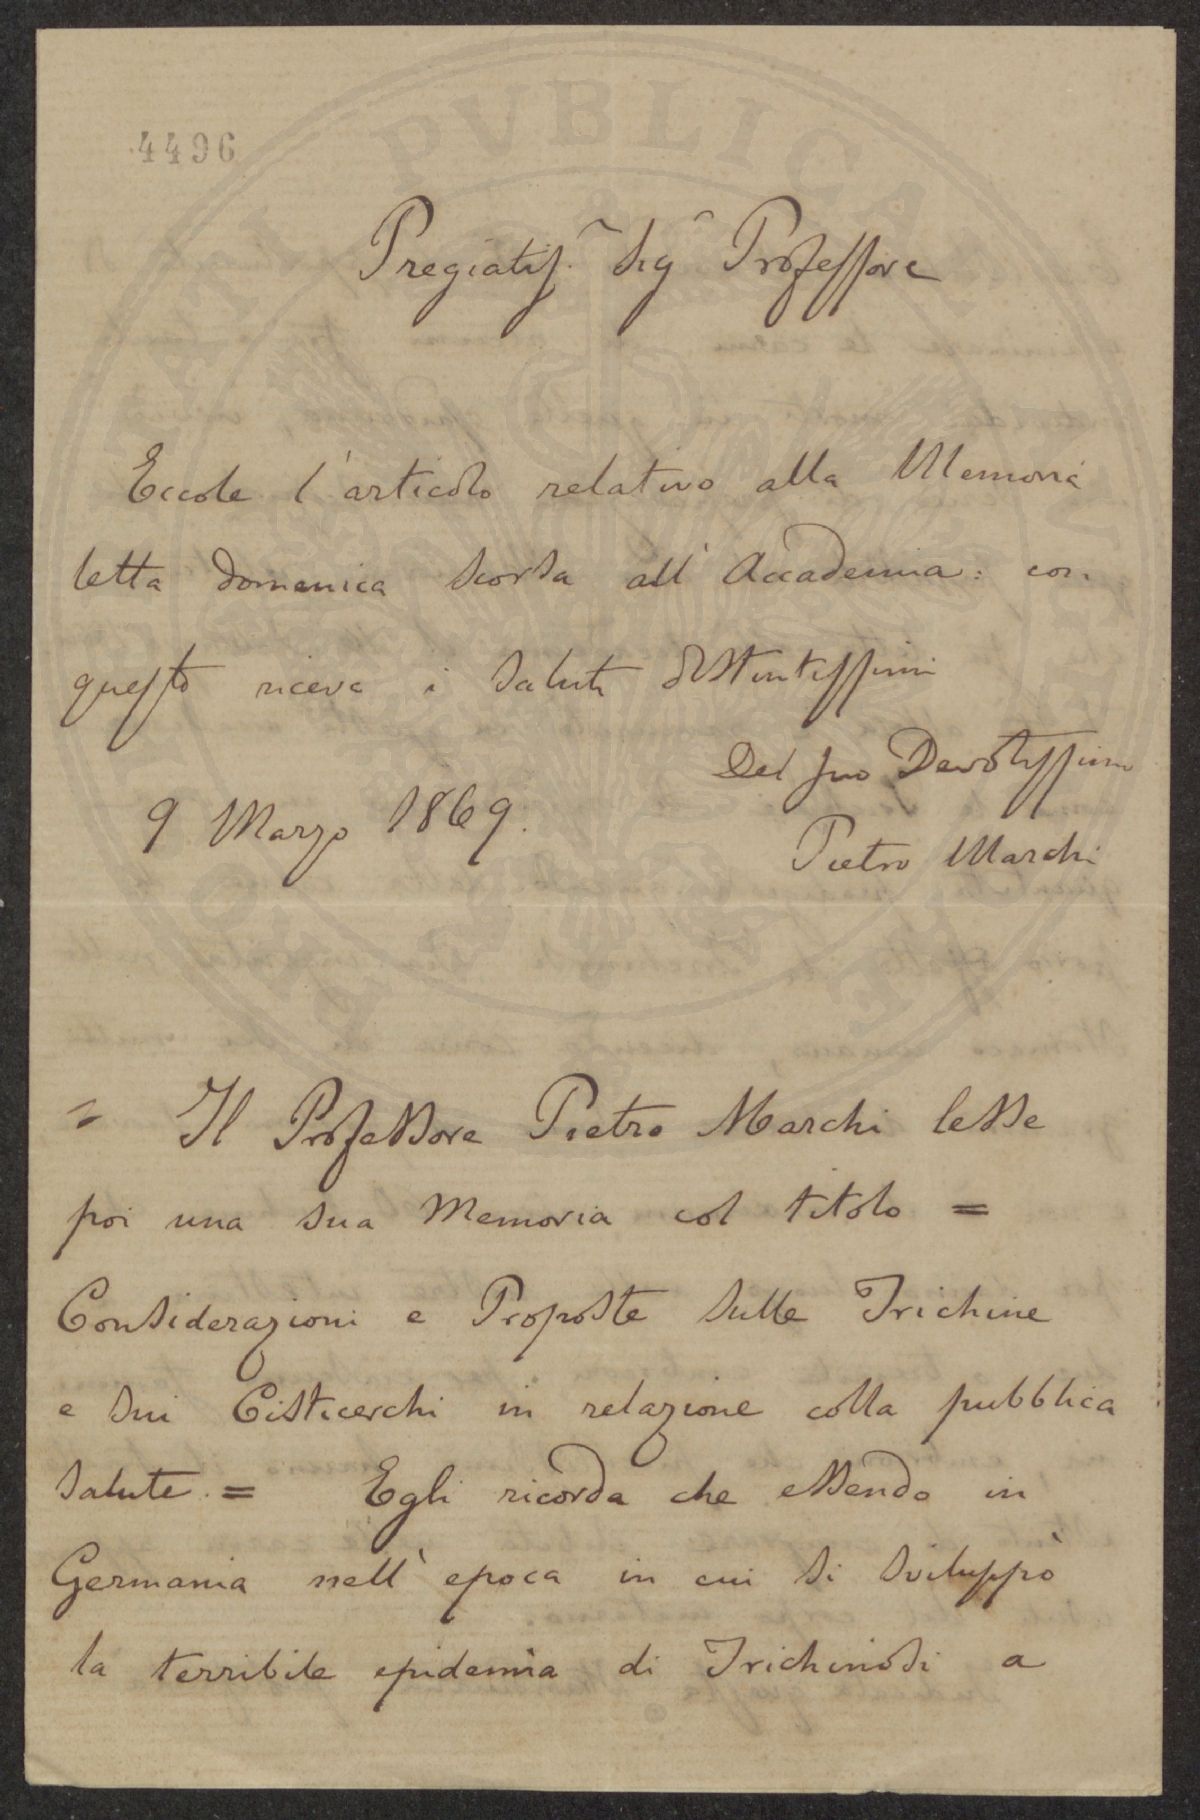 4496
Pregiatiss. Sig Professore
Eccole l'articolo relativo alla Memoria
letta domenica scorsa all'Accademia: con
questo riceva i saluti distintissimi
Del suo Devotissimo
9 Marzo 1869.
Pietro Marchi
= Il Professore Pietro Marchi lesse
poi una sua Memoria col titolo =
Considerazioni e Proposte sulle Trichine
e sui Cisticerchi in relazione colla pubblica
salute. = Egli ricorda che essendo in
Germania nell'epoca in cui si sviluppò
la terribile epidemia di Trichinosi a